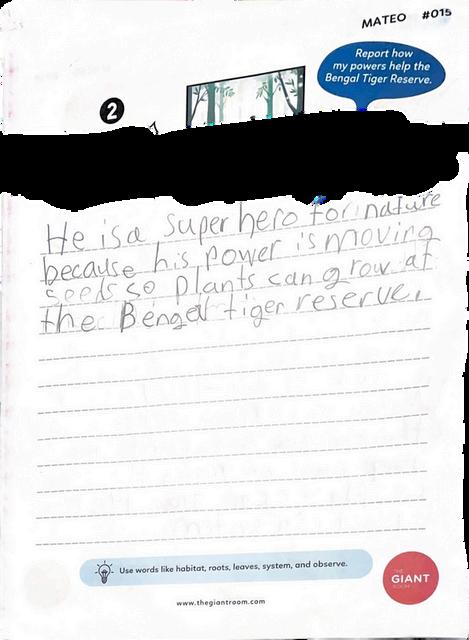 MATEO #015
Report how
my powers help the
Bengal Tiger Reserve.
2
He is a super hero for nature
because his power is moving
seeds so plants can grow at
the Bengal tiger reserve.
Use words like habitat, roots, leaves, system, and observe.
THE
GIANT
ROOM
www.thegiantroom.com